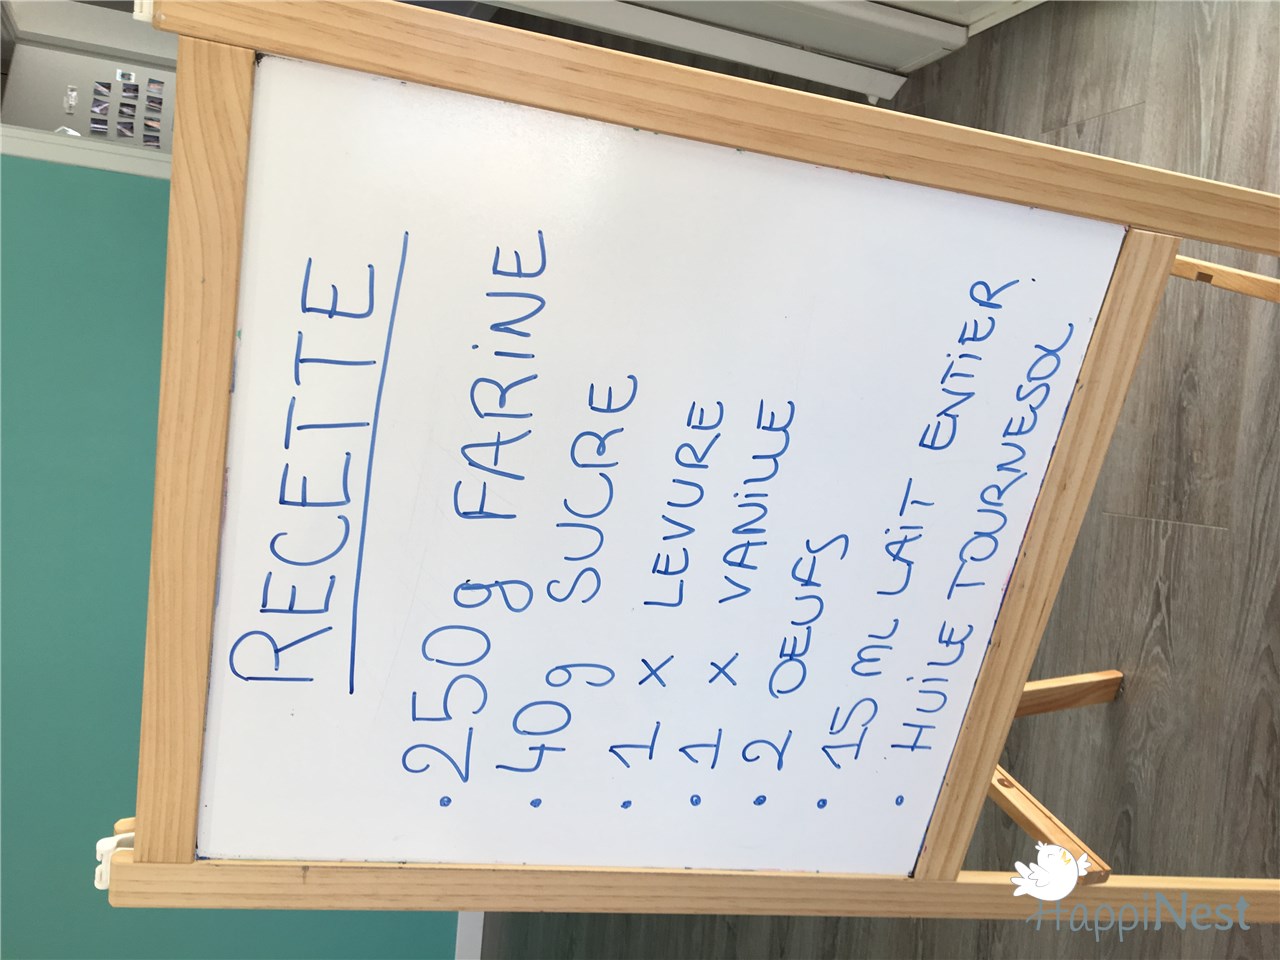 RECETTE
• 250g FARINE
• 40g SUCRE
• 1 x LEVURE
• 1 x VANILLE
• 2 OEUFS
• 15 ML LAIT ENTIER.
• HUILE TOURNESOL
HappiNest